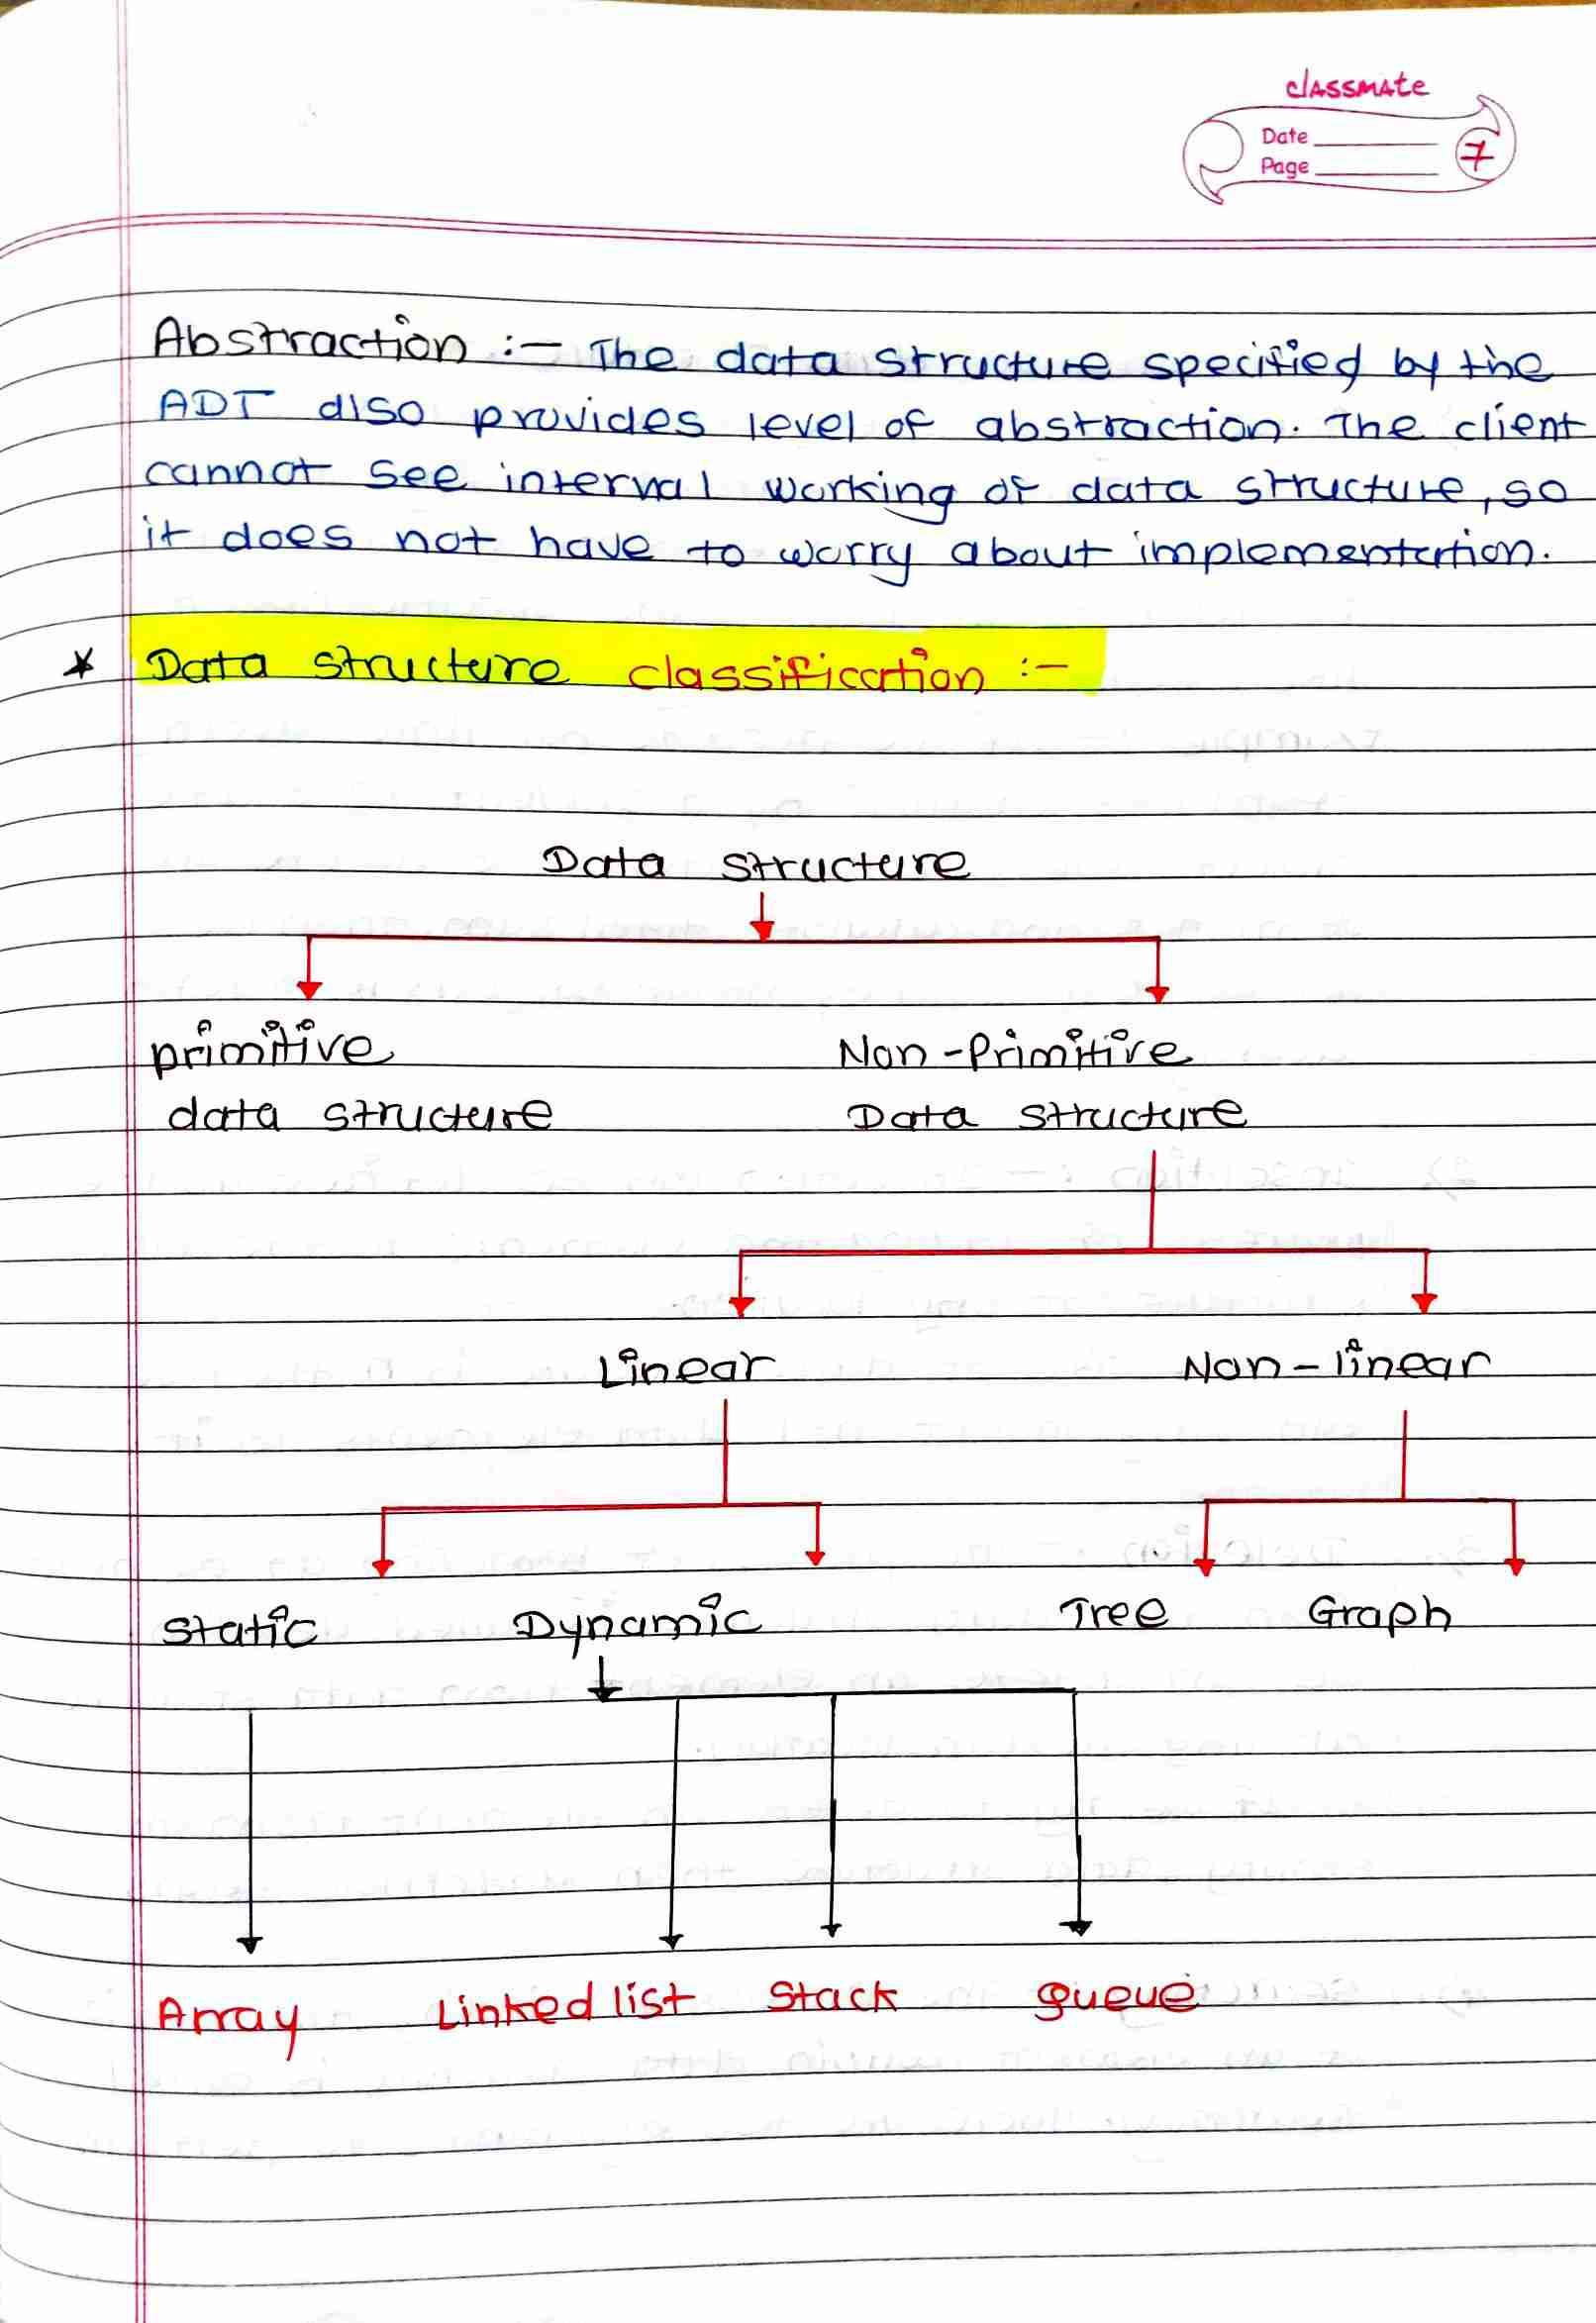 classmate
Date
Page
7
Abstraction :- The data structure specified by the
ADT also provides level of abstraction. The client
cannot see interval working of data structure, so
it does not have to worry about implementation.
* Data structure classification :-
Data structure
primitive Non-Primitive
data structure Data structure
Linear Non-linear
Static Dynamic Tree Graph
Array Linked list Stack queue